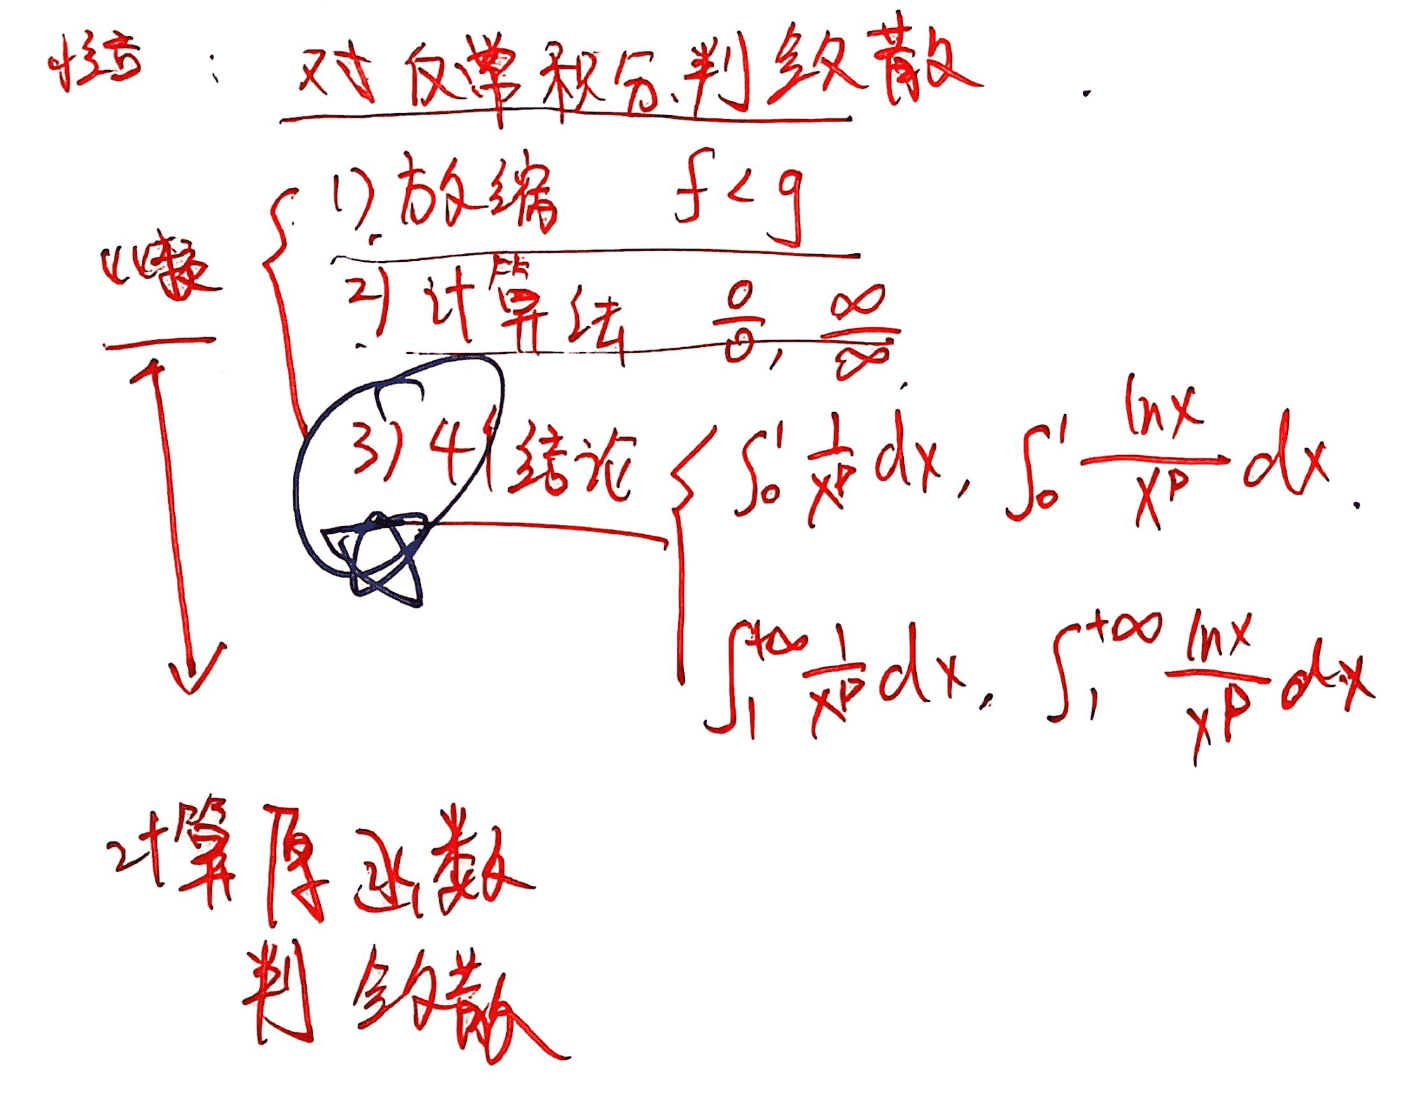 对反常积分判敛散
1) 放缩 f < g
2) 计算法 0/0, ∞/∞
3) 4个结论 ∫₀¹ 1/xᵖ dx, ∫₀¹ lnx/xᵖ dx.
∫₁⁺∞ 1/xᵖ dx, ∫₁⁺∞ lnx/xᵖ dx
计算原函数
判敛散